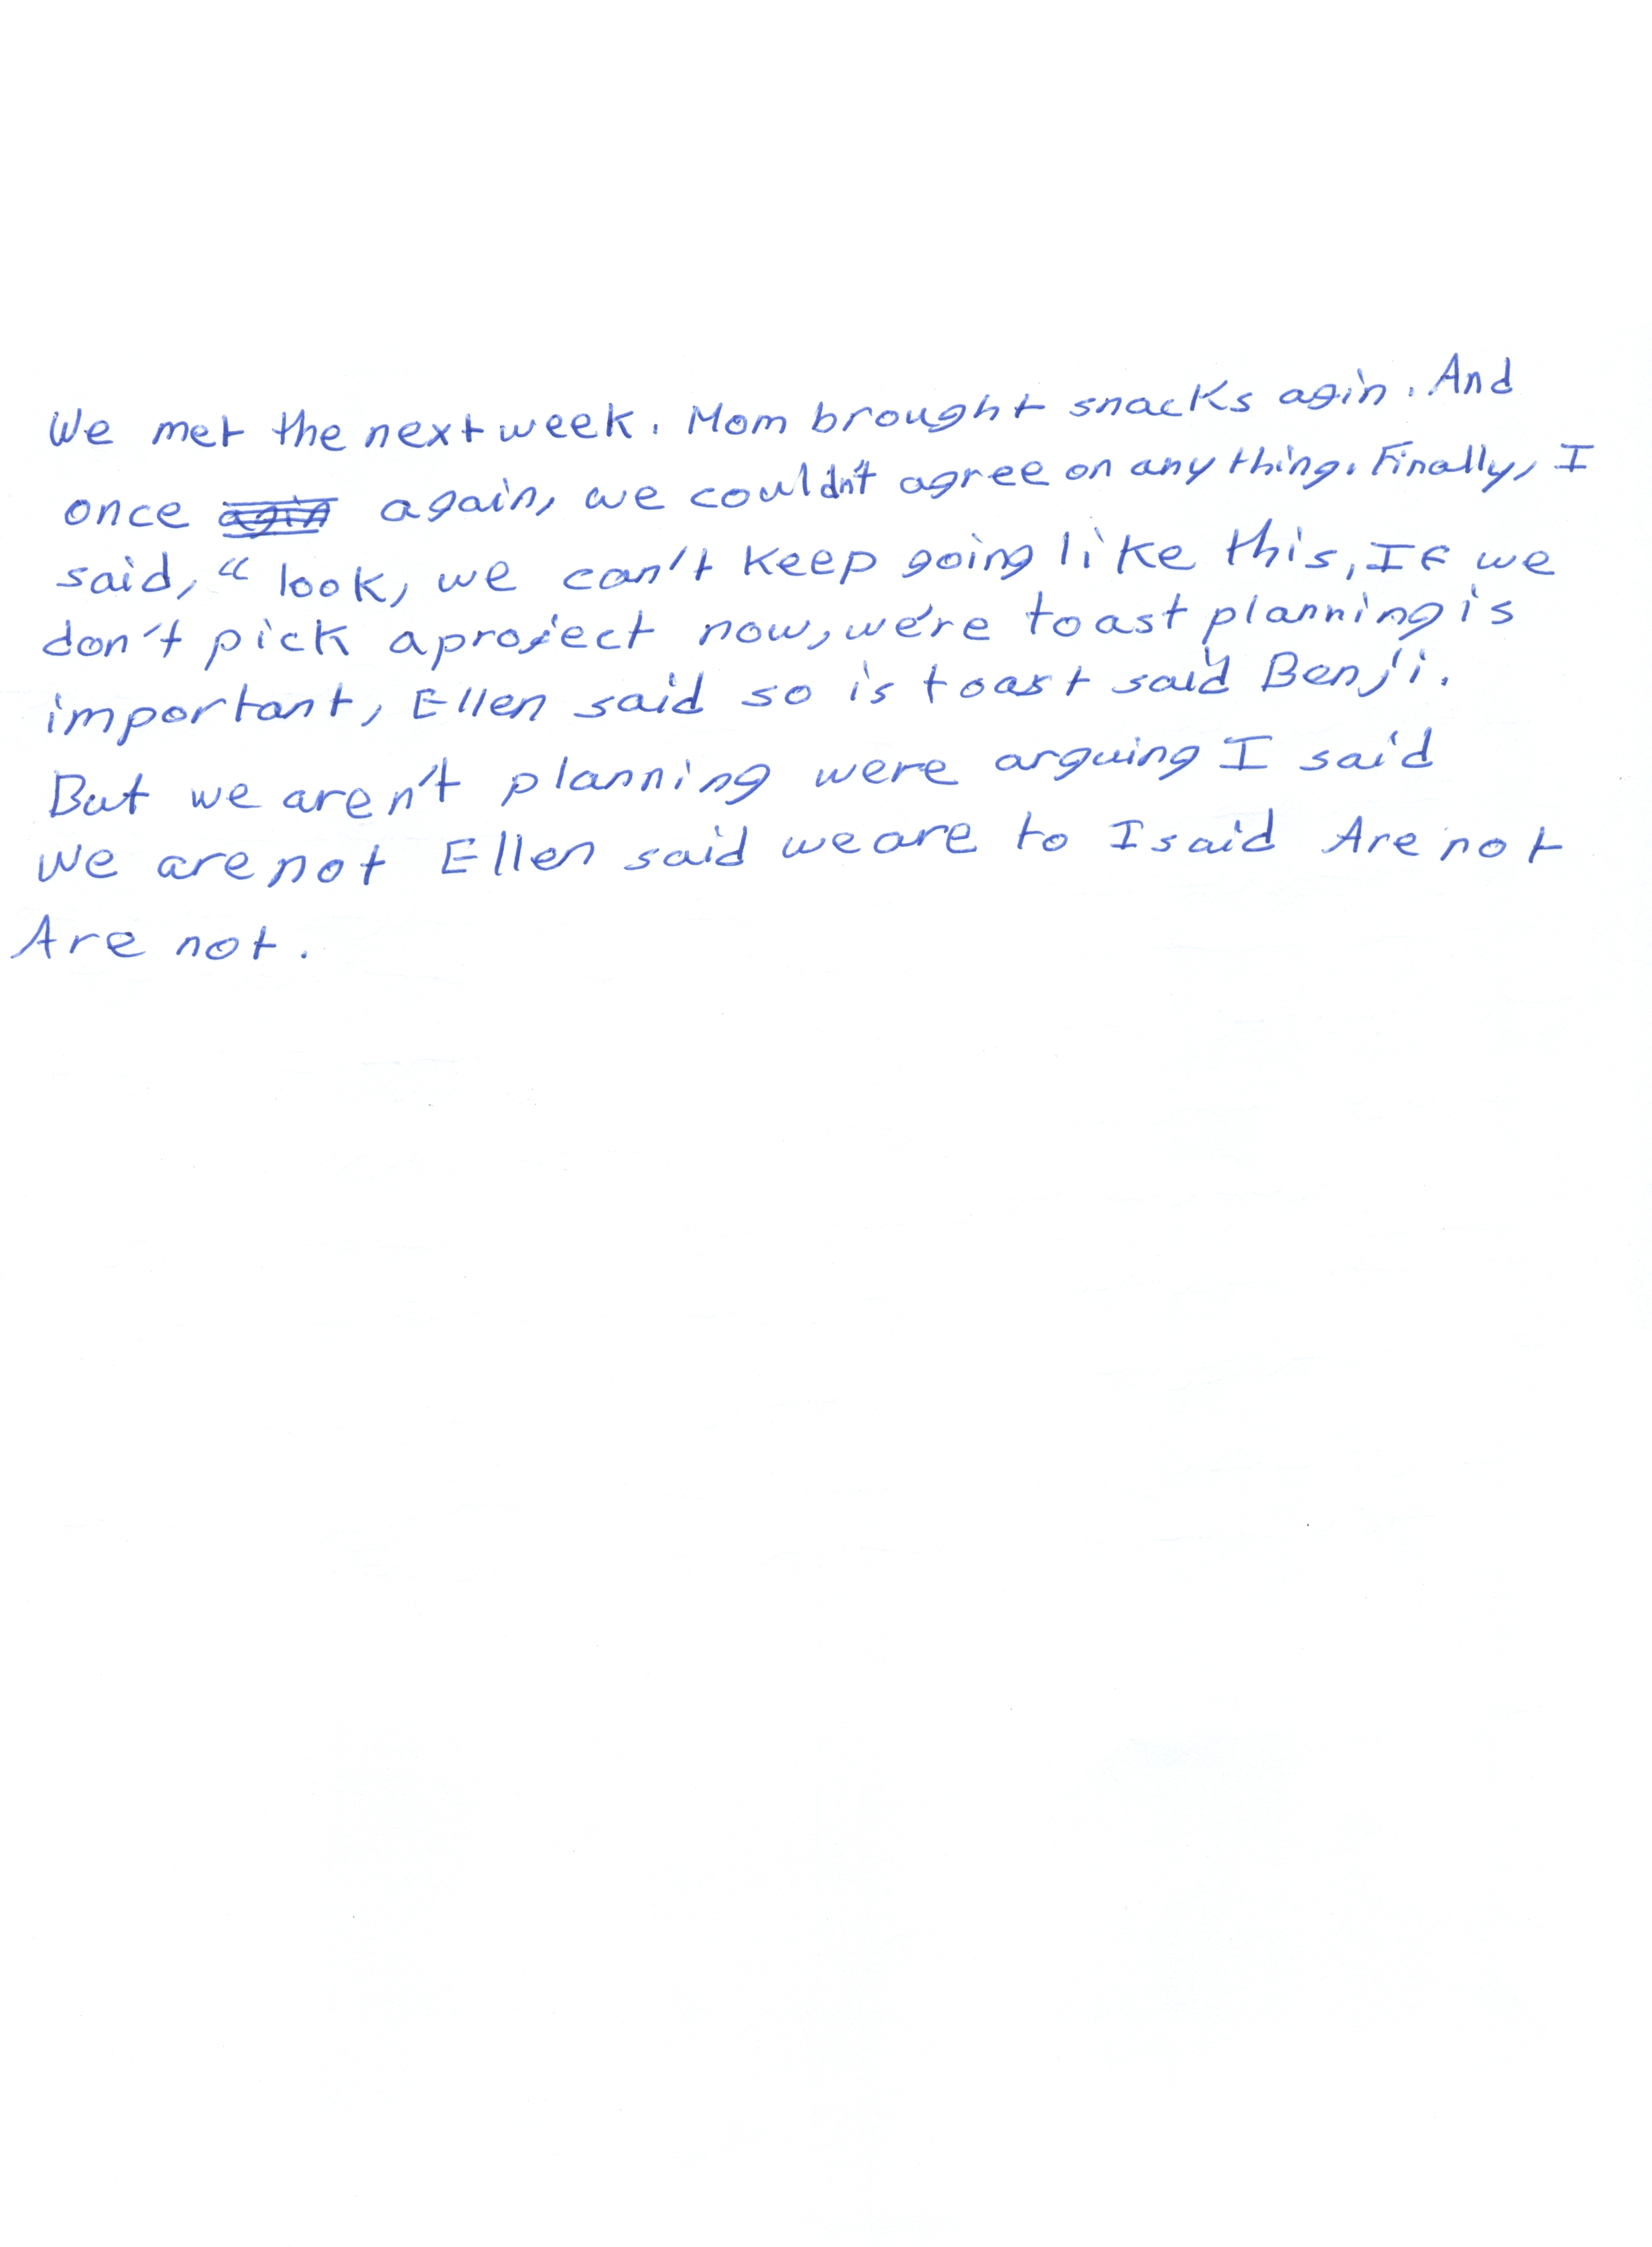 We met the next week. Mom brought snacks agin. And
once agin again, we couldn't agree on any thing. Finally, I
said, “ look, we can't keep going like this, If we
don't pick a project now, we're toast planning is
important, Ellen said so is toast said Benji.
But we aren't planning were arguing I said
We are not Ellen said we are to I said Are not
Are not.